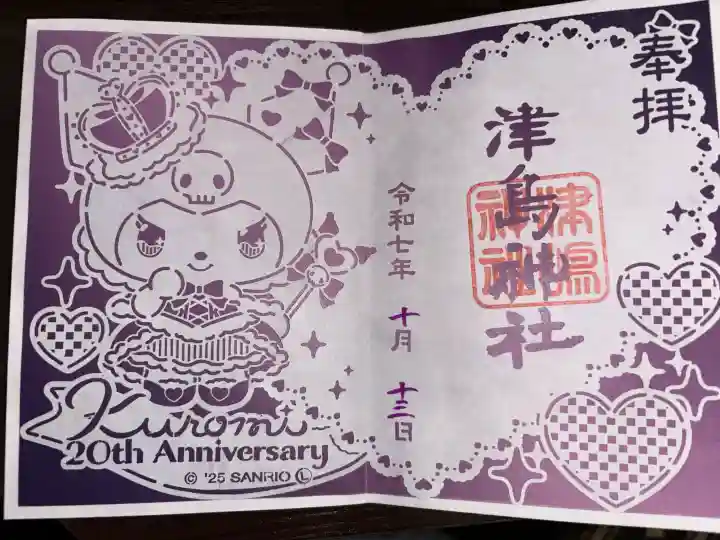 奉拝
津島神社
津島神社
令和七年 十月 十三日
Kuromi
20th Anniversary
© '25 SANRIO Ⓛ